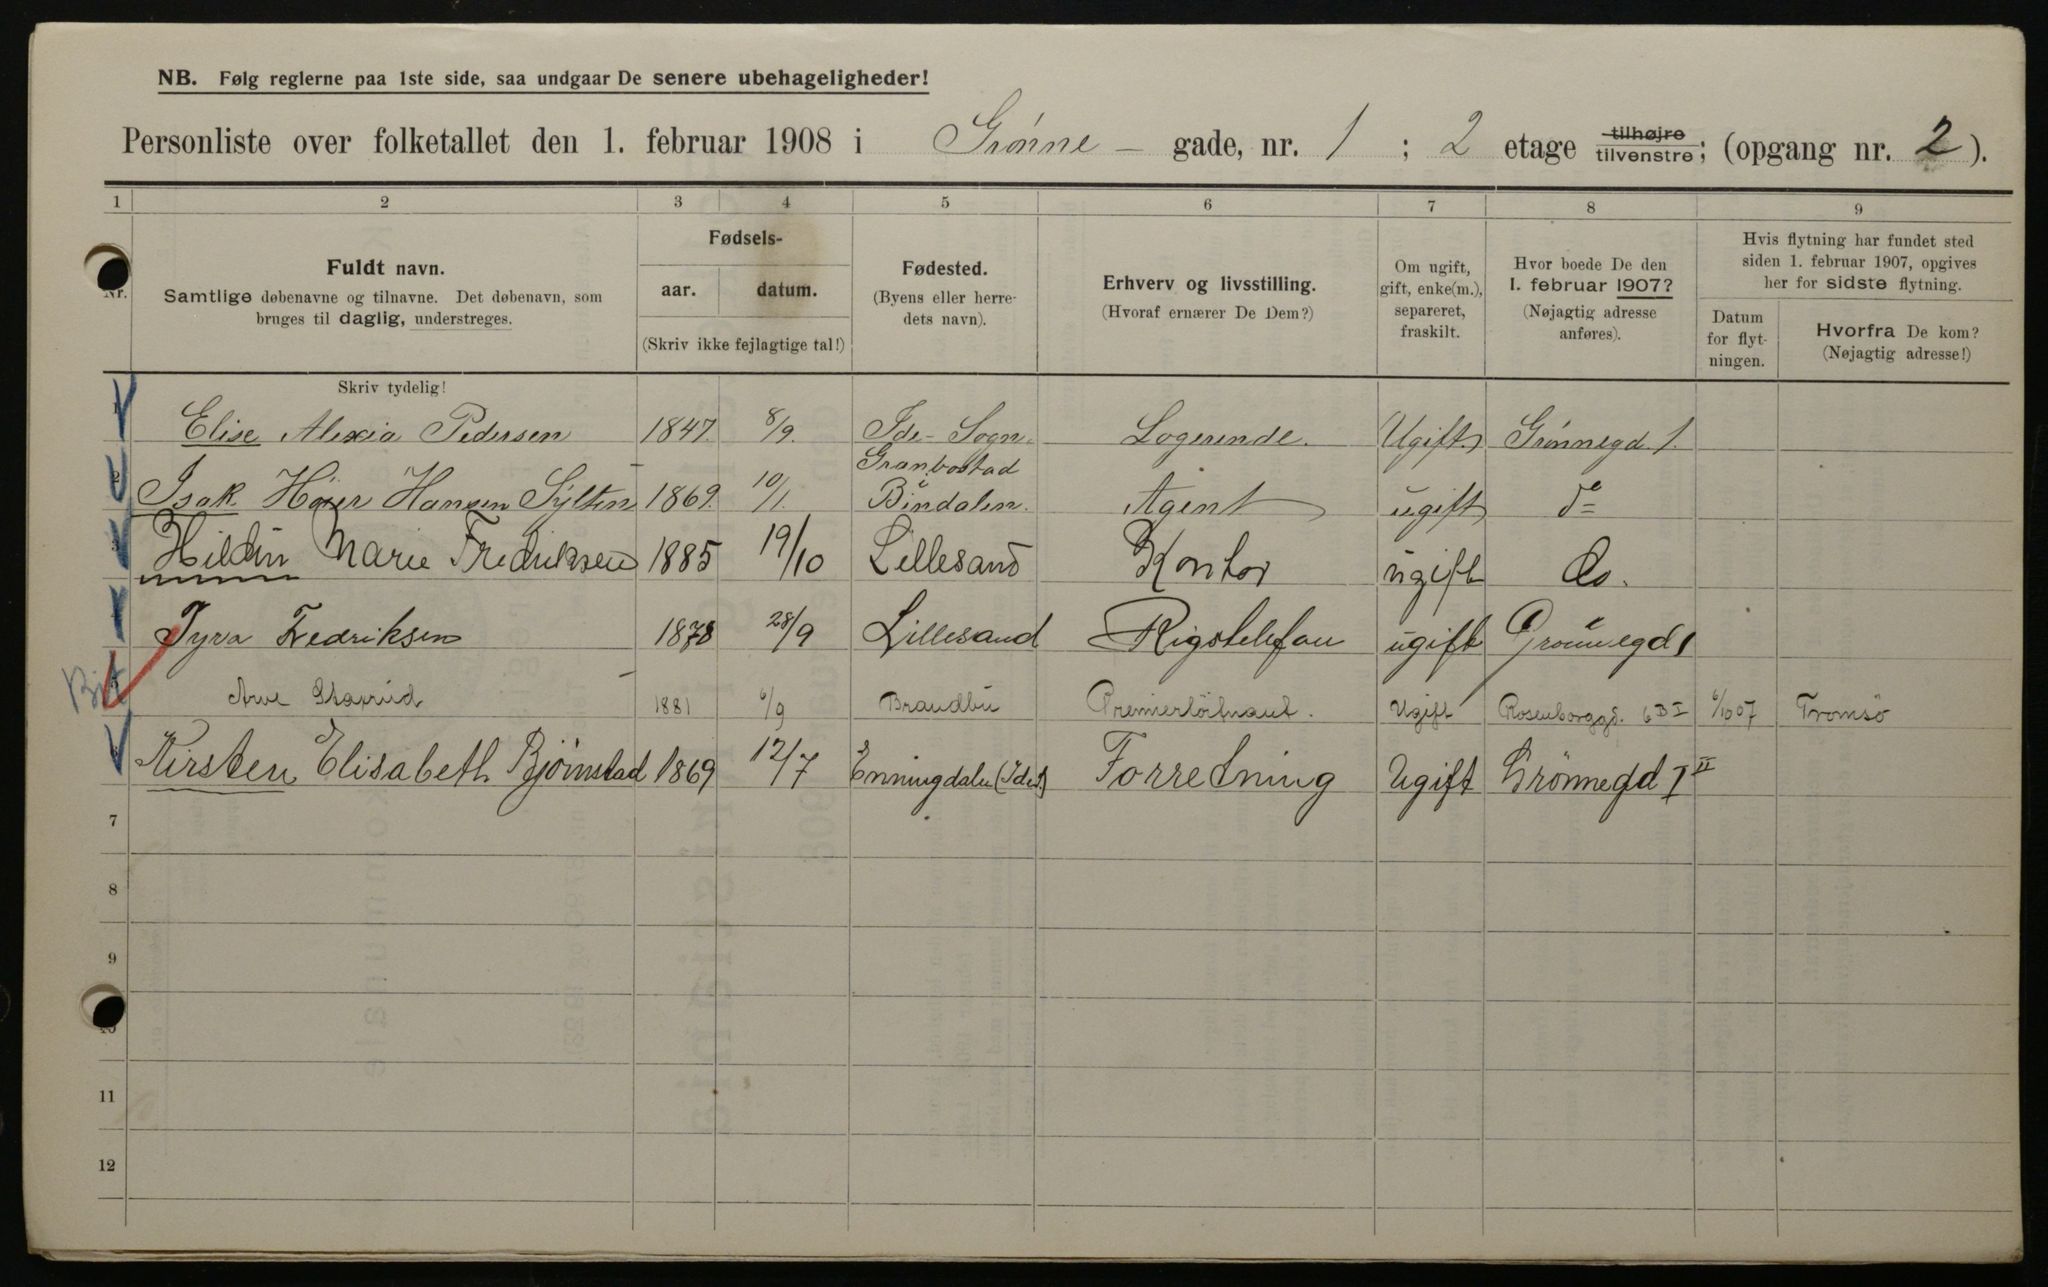 NB. Følg reglerne paa 1ste side, saa undgaar De senere ubehageligheder!
Personliste over folketallet den 1. februar 1908 i Grønne - gade, nr. 1 ; 2 etage tilhøjre tilvenstre; (opgang nr. 2).
1 2 3 4 5 6 7 8 9
Nr.
Fuldt navn.
Samtlige døbenavne og tilnavne. Det døbenavn, som
bruges til daglig, understreges.
Fødsels-
aar. datum.
(Skriv ikke fejlagtige tal!)
Fødested.
(Byens eller herre-
dets navn).
Erhverv og livsstilling.
(Hvoraf ernærer De Dem?)
Om ugift,
gift, enke(m.),
separeret,
fraskilt.
Hvor boede De den
1. februar 1907?
(Nøjagtig adresse
anføres).
Hvis flytning har fundet sted
siden 1. februar 1907, opgives
her for sidste flytning.
Datum
for flyt-
ningen.
Hvorfra De kom?
(Nøjagtig adresse!)
Skriv tydelig!
1 Elise Alexia Pedersen 1847. 8/9. Ide - Sogn. Logerende. Ugift. Grønnegd. 1.
2 Isak Høier Hansen Sylten 1869. 10/1. Granbostad i Bindalen. Agent ugift do
3 Marie Fredriksen 1885 19/10 Lillesand Kontor ugift Do.
4 Tyra Fredriksen 1878 28/9 Lillesand Rigstelefon ugift Grønnegd 1
5 Arve Staxrud 1881 6/9 Brandbu Premierløitnant. Ugift Rosenborggd. 6 B I 6/10 07 Tromsø
6 Kirsten Elisabeth Bjørnstad 1869 12/7 Enningdalen (Ide S.) Forretning Ugift Grønnegd 1 II
7
8
9
10
11
12